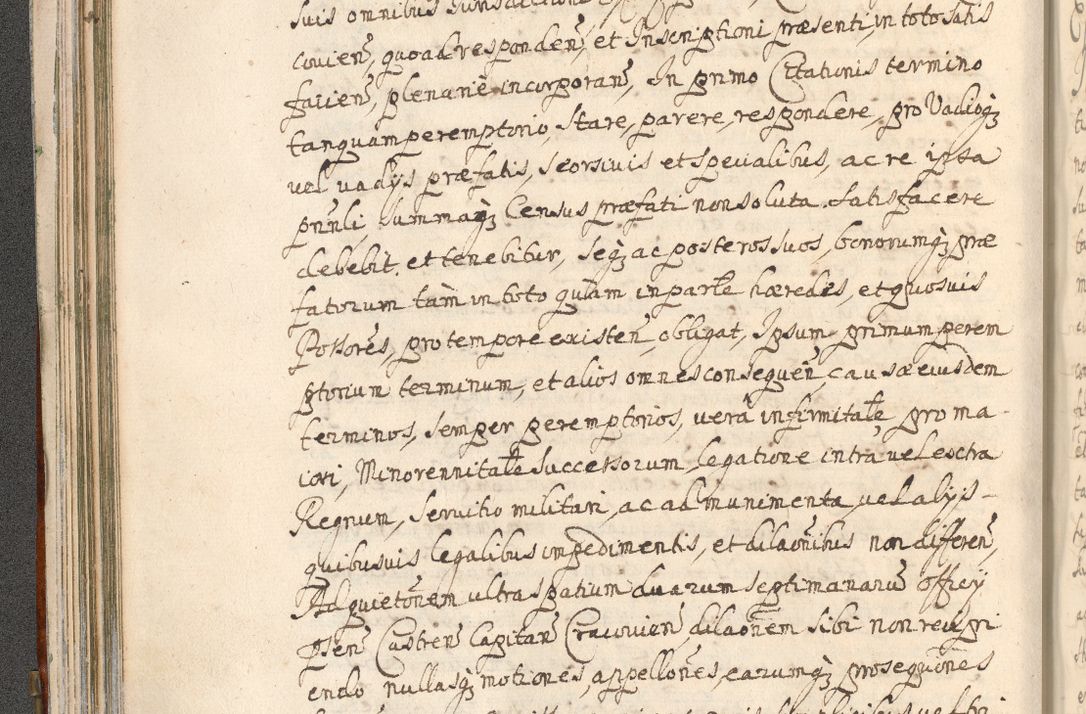 suis omnibus
covien̄, quoad responden̄, et Inscriptioni præsenti, in toto satis
facien̄, plenarie incorporan̄, In primo Citationis termino
tanquam peremptorio, stare, parere, respondere, pro Vadioq꜕
vel vadys præfatis, seorsivis et specialibus, ac re ipsa
pnn̄li, summaq꜕ Census præfati non soluta. satisfacere
debebit, et tenebitur, seq꜕ ac posteros suos, bonorumq꜕ præ
fatorum tàm in toto quàm in parte hæredes, et quosvis
Possorēs, pro tempore existen̄, obligat, Ipsum primum perem
ptorium terminum, et alios omnes consequen̄, causæ eiusdem
terminos, semper peremptorios, verâ infirmitate, pro ma-
iori, Minorennitate Successorum, legatione intrà vel extra
Regnum, servitio militari, ac ad munimenta, vel alijs-
quibusvis legalibus impedimentis, et dilaōnibus non differen̄,
Ad quietōnem ultra spatium duarum septimanarū officy
Psen̄ Castren̄ Capitan̄ Cracovien̄ dilaōnem sibi non recipi
endo nullasq꜕ motiones, appellōnes, earumq꜕ prosequōnes